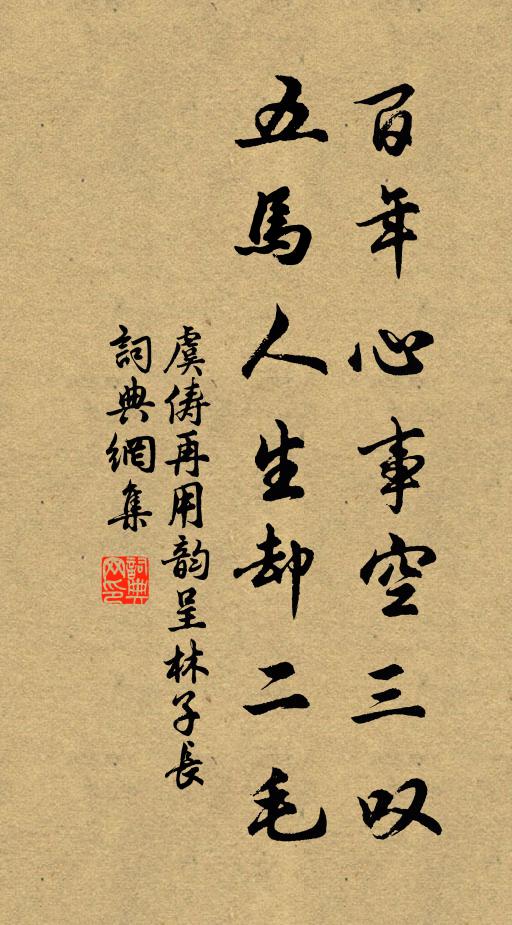 百年心事空三叹
五馬人生却二毛
虞俦再用韵呈林子長
詞典網集
詞典网印